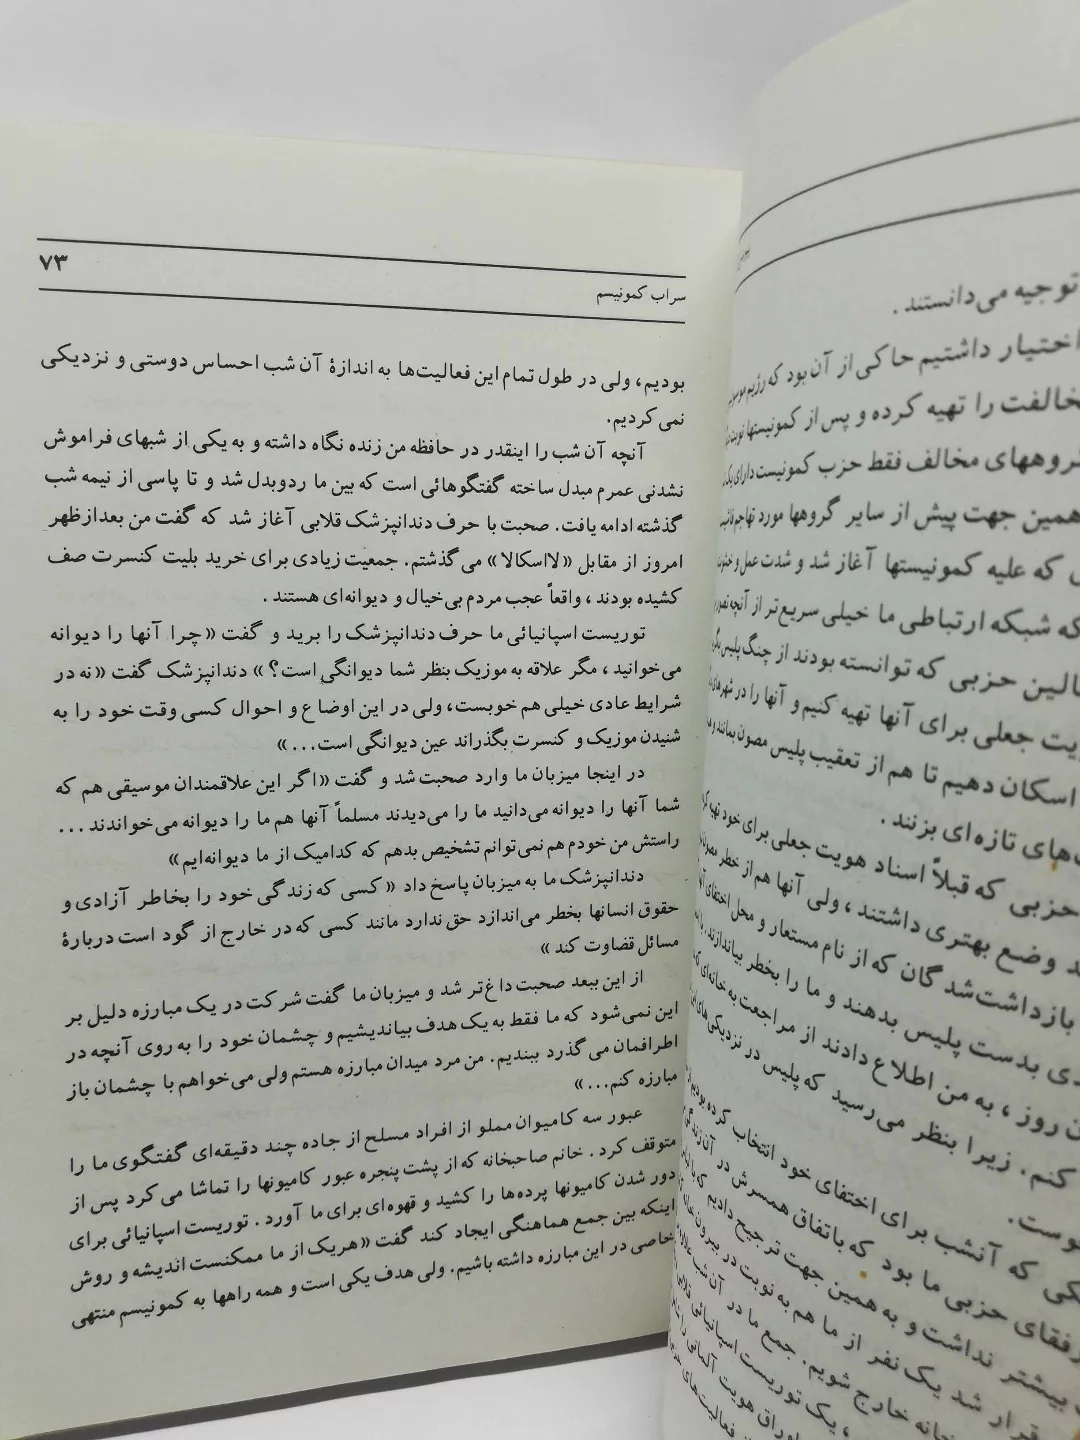 توجیه می‌دانستند .
اختیار داشتیم حاکی از آن بود که رژیم
مخالفت را تهیه کرده و پس از کمونیستها نوبت
گروههای مخالف فقط حزب کمونیست دارای یک
همین جهت پیش از سایر گروهها مورد تهاجم
که علیه کمونیستها آغاز شد و شدت عمل و
که شبکه ارتباطی ما خیلی سریع‌تر از آنچه تصور
حزبی که توانسته بودند از چنگ پلیس
جعلی برای آنها تهیه کنیم و آنها را در شهرهای
اسکان دهیم تا هم از تعقیب پلیس مصون بمانند و
تازه‌ای بزنند .
حزبی که قبلاً اسناد هویت جعلی برای خود تهیه
وضع بهتری داشتند ، ولی آنها هم از خطر
بازداشت‌شدگان که از نام مستعار و محل اختفای
بدست پلیس بدهند و ما را بخطر بیاندازند.
روز ، به من اطلاع دادند از مراجعت به خانه‌ای که
کنم. زیرا بنظر می‌رسید که پلیس در نزدیکی‌های
که آنشب برای اختفای خود انتخاب کرده بودیم
رفقای حزبی ما بود که باتفاق همسرش در آن زندگی
بیشتر نداشت و به همین جهت ترجیح دادیم که
قرار شد یک نفر از ما هم به نوبت در بیرون
خارج شویم. جمع ما در آن شب
، یک توریست اسپانیائی
اوراق هویت آلمانی
فعالیت‌های
۷۳
سراب کمونیسم
بودیم، ولی در طول تمام این فعالیت‌ها به اندازهٔ آن شب احساس دوستی و نزدیکی
نمی‌کردیم.
آنچه آن شب را اینقدر در حافظه من زنده نگاه داشته و به یکی از شبهای فراموش
نشدنی عمرم مبدل ساخته گفتگوهائی است که بین ما ردوبدل شد و تا پاسی از نیمه شب
گذشته ادامه یافت. صحبت با حرف دندانپزشک قلابی آغاز شد که گفت من بعدازظهر
امروز از مقابل «لااسکالا» می‌گذشتم. جمعیت زیادی برای خرید بلیت کنسرت صف
کشیده بودند ، واقعاً عجب مردم بی‌خیال و دیوانه‌ای هستند .
توریست اسپانیائی ما حرف دندانپزشک را برید و گفت «چرا آنها را دیوانه
می‌خوانید ، مگر علاقه به موزیک بنظر شما دیوانگی است؟» دندانپزشک گفت «نه در
شرایط عادی خیلی هم خوبست، ولی در این اوضاع و احوال کسی وقت خود را به
شنیدن موزیک و کنسرت بگذراند عین دیوانگی است...»
در اینجا میزبان ما وارد صحبت شد و گفت «اگر این علاقمندان موسیقی هم که
شما آنها را دیوانه می‌دانید ما را می‌دیدند مسلماً آنها هم ما را دیوانه می‌خواندند ...
راستش من خودم هم نمی‌توانم تشخیص بدهم که کدامیک از ما دیوانه‌ایم»
دندانپزشک ما به میزبان پاسخ داد «کسی که زندگی خود را بخاطر آزادی و
حقوق انسانها بخطر می‌اندازد حق ندارد مانند کسی که در خارج از گود است دربارهٔ
مسائل قضاوت کند »
از این ببعد صحبت داغ‌تر شد و میزبان ما گفت شرکت در یک مبارزه دلیل بر
این نمی‌شود که ما فقط به یک هدف بیاندیشیم و چشمان خود را به روی آنچه در
اطرافمان می‌گذرد ببندیم. من مرد میدان مبارزه هستم ولی می‌خواهم با چشمان باز
مبارزه کنم...»
عبور سه کامیوان مملو از افراد مسلح از جاده چند دقیقه‌ای گفتگوی ما را
متوقف کرد . خانم صاحبخانه که از پشت پنجره عبور کامیونها را تماشا می‌کرد پس از
دور شدن کامیونها پرده‌ها را کشید و قهوه‌ای برای ما آورد . توریست اسپانیائی برای
اینکه بین جمع هماهنگی ایجاد کند گفت «هریک از ما ممکنست اندیشه و روش
خاصی در این مبارزه داشته باشیم. ولی هدف یکی است و همه راهها به کمونیسم منتهی